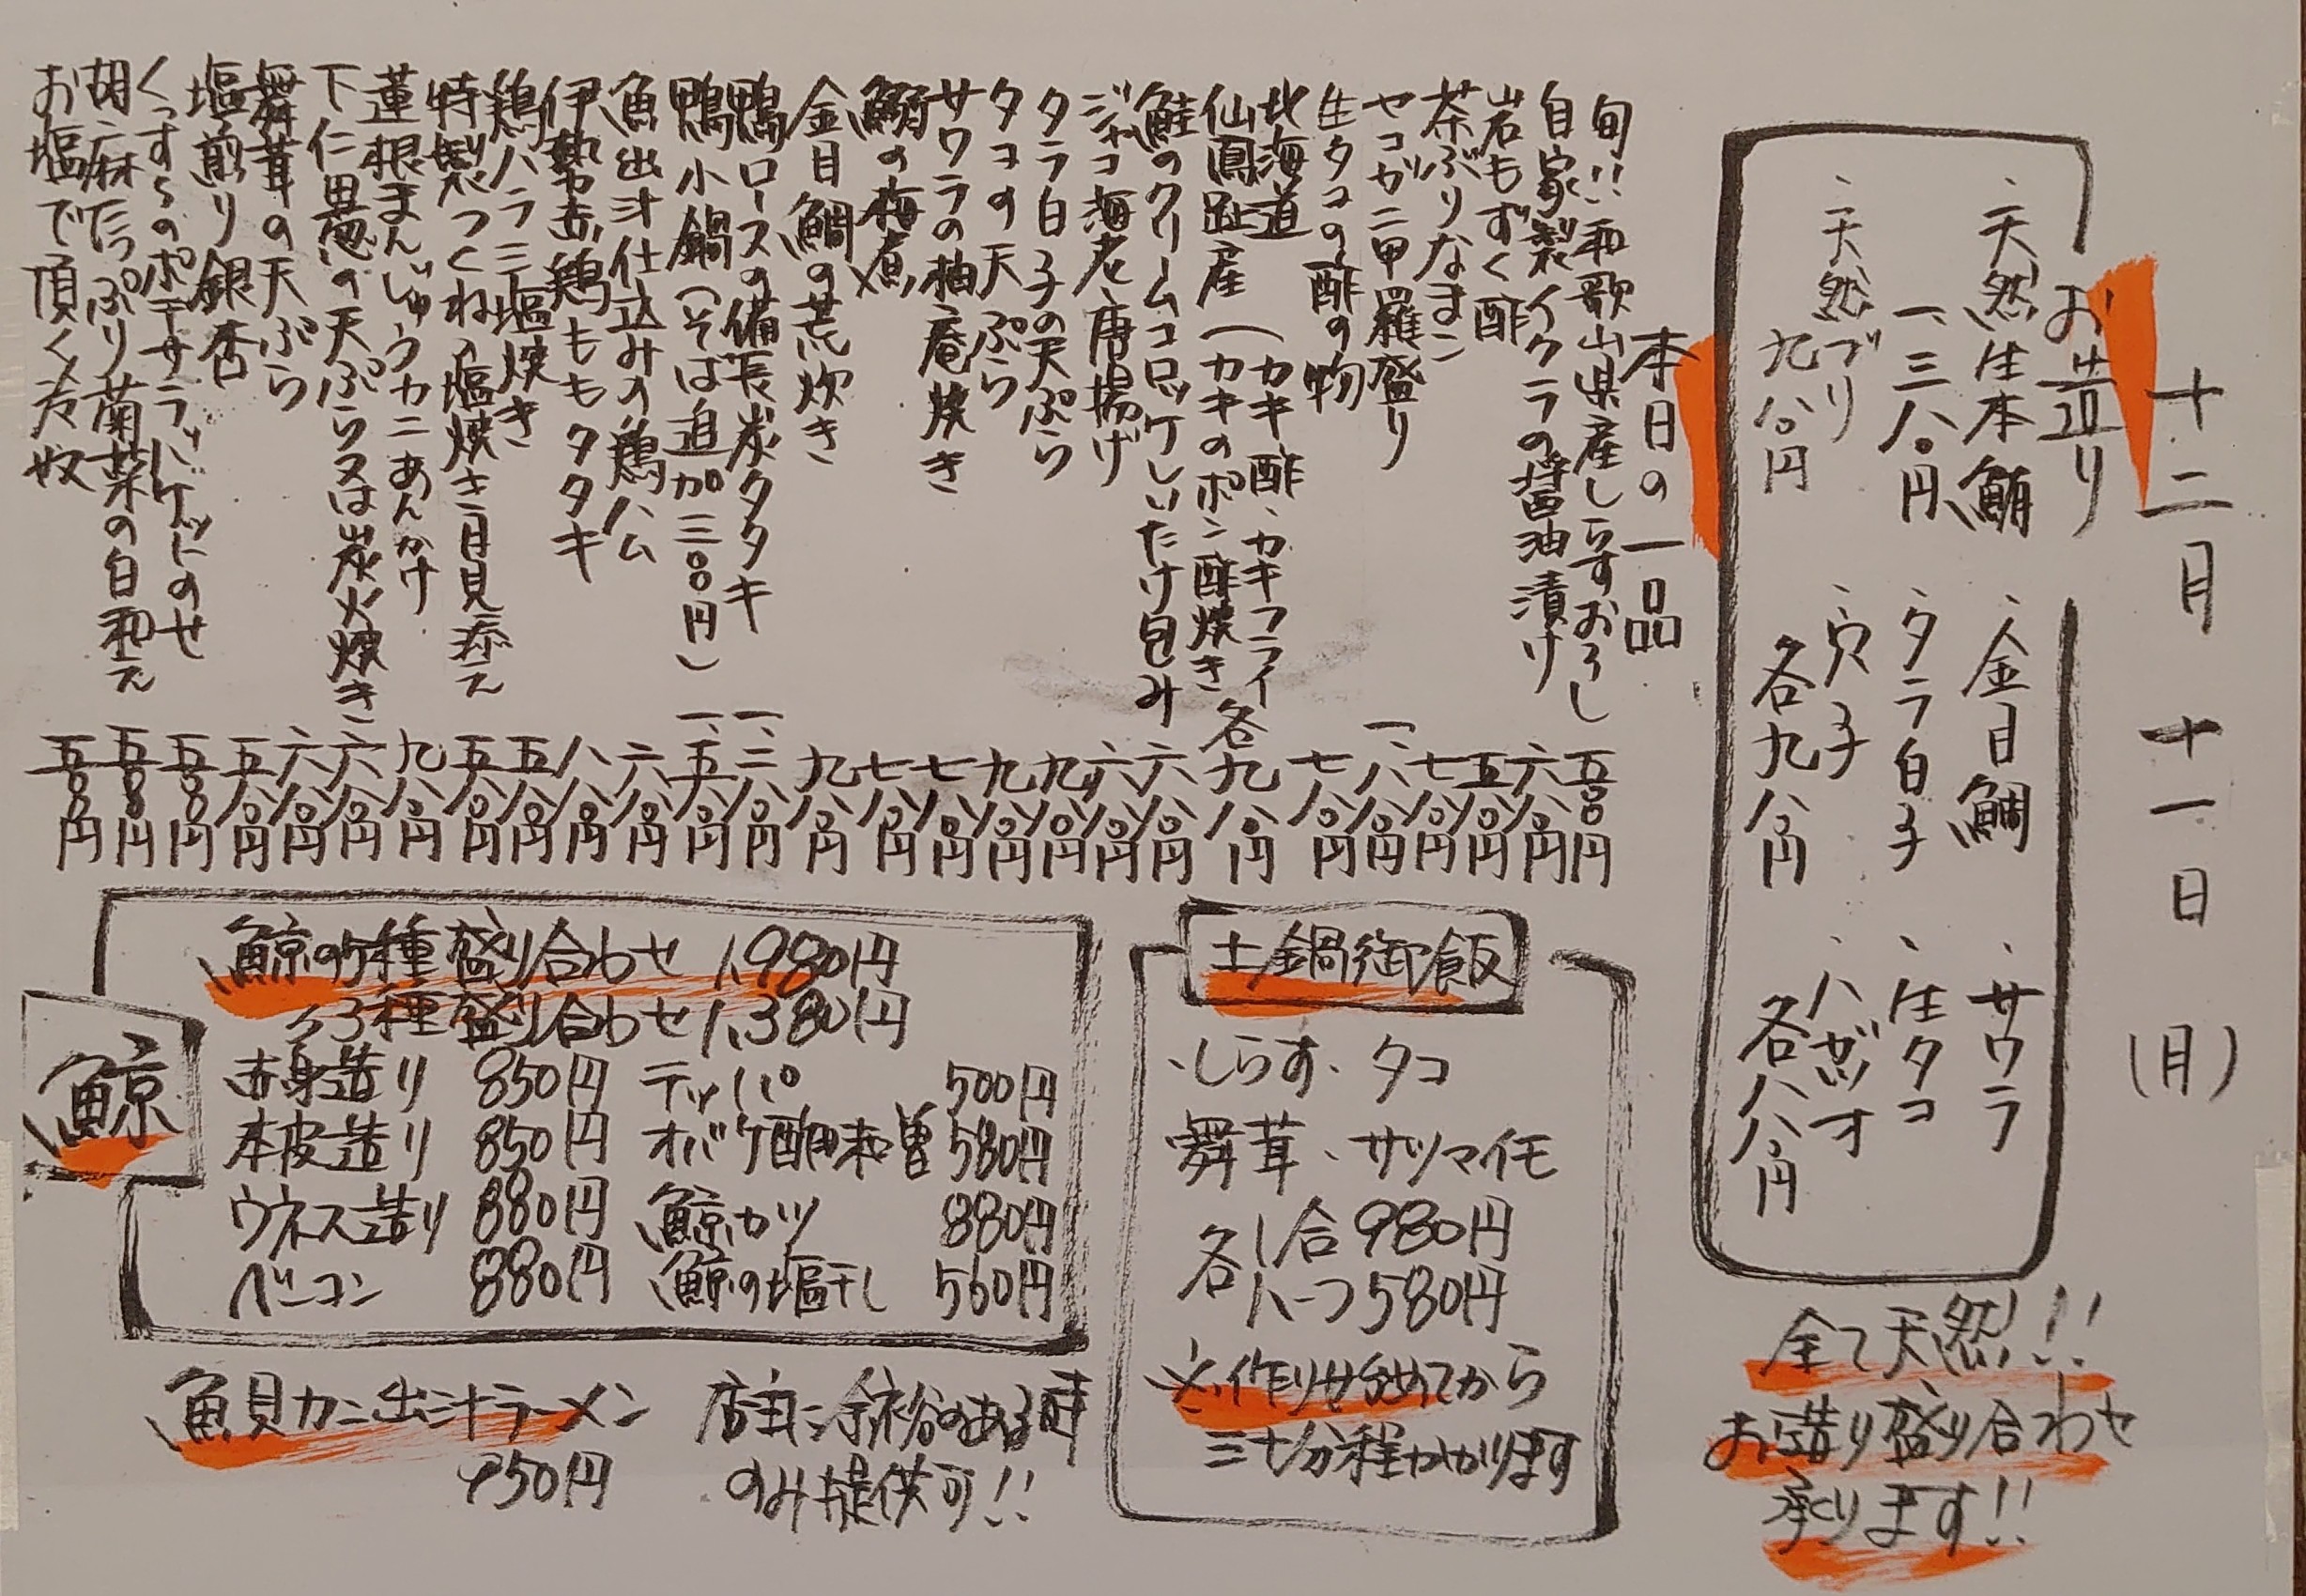 十二月十一日(月)
お造り
、天然生本鮪
一、三八〇円
、天然ブリ
九八〇円
、金目鯛
、タラ白子
、穴子
各九八〇円
、サワラ
、生タコ
、ハガツオ
各八八〇円
全て天然!!
お造り盛り合わせ
承ります!!
本日の一品
旬!!和歌山県産しらすおろし 五〇〇円
自家製イクラの醤油漬け 六八〇円
岩もずく酢 五八〇円
茶ぶりなまこ 七八〇円
セコガニ甲羅盛り 一、八八〇円
生タコの酢の物 七八〇円
北海道 (カキ酢、カキフライ
仙鳳趾産 (カキのポン酢焼き 各九八〇円
鮭のクリームコロッケしいたけ包み 六八〇円
ジャコ海老唐揚げ 六八〇円
タラ白子の天ぷら 九八〇円
タコの天ぷら 九八〇円
サワラの柚庵焼き 七八〇円
鰯の梅煮 七八〇円
金目鯛の荒炊き 九八〇円
鴨ロースの備長炭タタキ 一、二八〇円
鴨小鍋(そば追加三〇〇円) 一、五八〇円
魚出汁仕込みの鶏ハム 六八〇円
伊勢赤鶏ももタタキ 八八〇円
鶏ハラミ塩焼き 五八〇円
特製つくね塩焼き月見添え 五八〇円
蓮根まんじゅうカニあんかけ 九八〇円
下仁田葱の天ぷら又は炭火焼き 六八〇円
舞茸の天ぷら 六八〇円
塩煎り銀杏 五八〇円
くずし〆のポテサラバゲットにのせ 五〇〇円
胡麻たっぷり菊菜の白和え 五〇〇円
お塩で頂く冷奴 五〇〇円
土鍋御飯
、しらす、タコ
舞茸、サツマイモ
各1合980円
各ハーフ580円
※作り始めてから
三十分程かかります
鯨
鯨の5種盛り合わせ 1,980円
〃3種盛り合わせ 1,380円
赤身造り 850円 テッパ 500円
本皮造り 850円 オバケ酢味噌 580円
ウネス造り 880円 鯨カツ 880円
ベーコン 880円 鯨の塩干し 560円
魚貝カニ出汁ラーメン
950円
店主に余裕のある時
のみ提供可!!